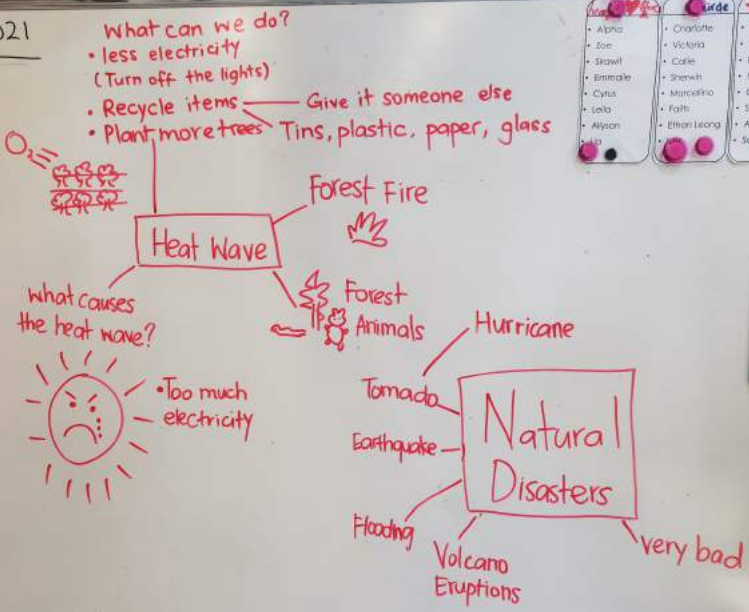 021
What can we do?
• less electricity
(Turn off the lights)
• Recycle items
Give it someone else
• Plant more trees
Tins, plastic, paper, glass
O₂
Heat Wave
Forest Fire
Forest
Animals
What causes
the heat wave?
• Too much
electricity
Hurricane
Tornado
Earthquake
Flooding
Volcano
Eruptions
Natural
Disasters
very bad
• Alpha
• Zoe
• Sirawit
• Emmalie
• Cyrus
• Leila
• Allyson
• Charlotte
• Victoria
• Callie
• Sherwin
• Marcelino
• Faith
• Ethan Leong